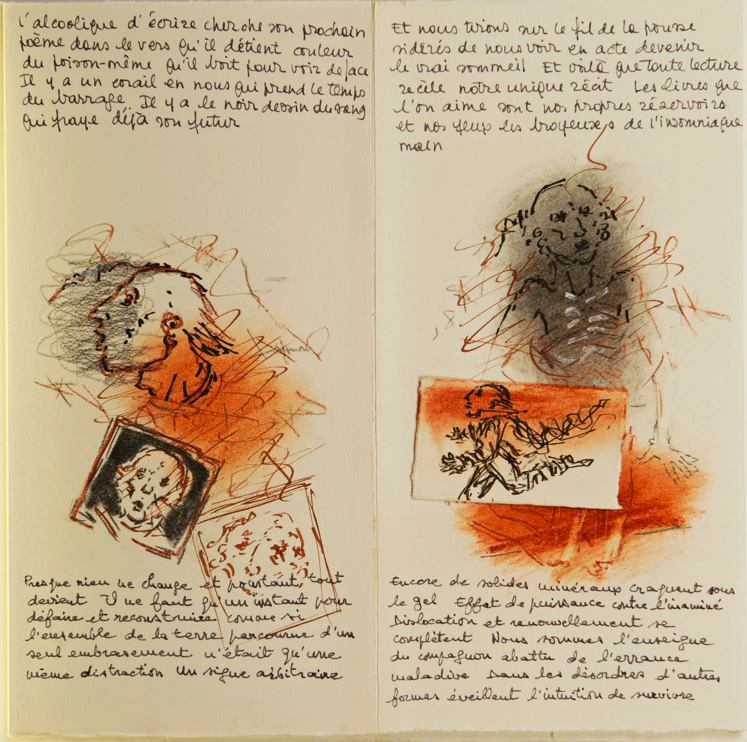 l'alcoolique d'écrire cherche son prochain
poème dans le vers qu'il détient couleur
du poison-même qu'il boit pour voir de face
Il y a un corail en nous qui prend le temps
du barrage Il y a le noir dessin du sang
qui fraye déjà son futur
Presque rien ne change et pourtant tout
devient Il ne faut qu'un instant pour
défaire et reconstruire comme si
l'ensemble de la terre parcourue d'un
seul embrasement n'était qu'une
même distraction Un signe arbitraire
Et nous tirions sur le fil de la pousse
sidérés de nous voir en acte devenir
le vrai sommeil Et voilà que toute lecture
recèle notre unique récit Les livres que
l'on aime sont nos propres réservoirs
et nos yeux les broyeuses de l'insomniaque
main
Encore de solides minéraux craquent sous
le gel Effet de puissance contre l'inanimé
Dislocation et renouvellement se
complètent Nous sommes l'enseigne
du compagnon abattu de l'errance
maladive Dans les désordres d'autres
formes éveillent l'intuition de survivre